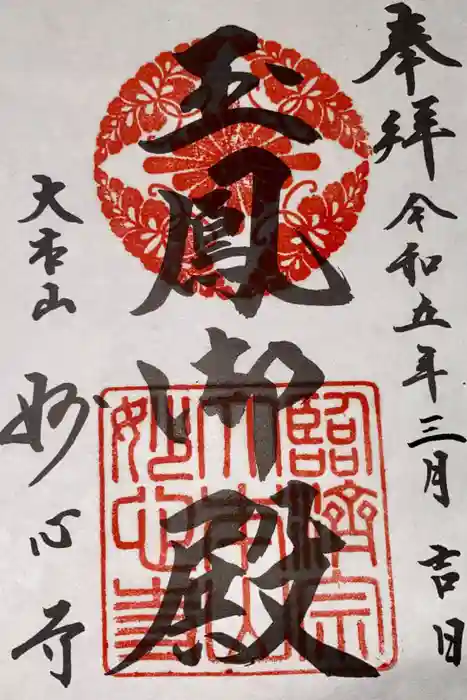 奉拝 令和五年三月吉日
玉鳳御殿
大本山 妙心寺
臨済宗
大本山
妙心寺